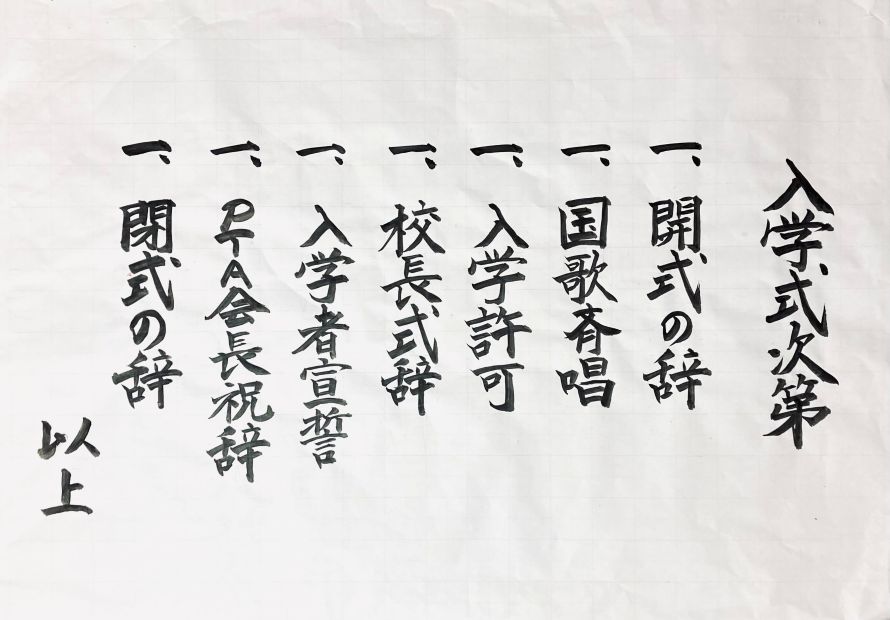 入学式次第
一、開式の辞
一、国歌斉唱
一、入学許可
一、校長式辞
一、入学者宣誓
一、PTA会長祝辞
一、閉式の辞
以上